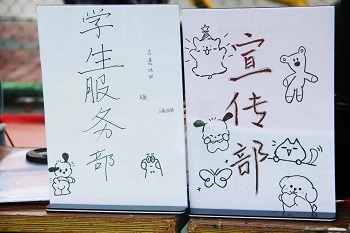 学生服务部
宣传部